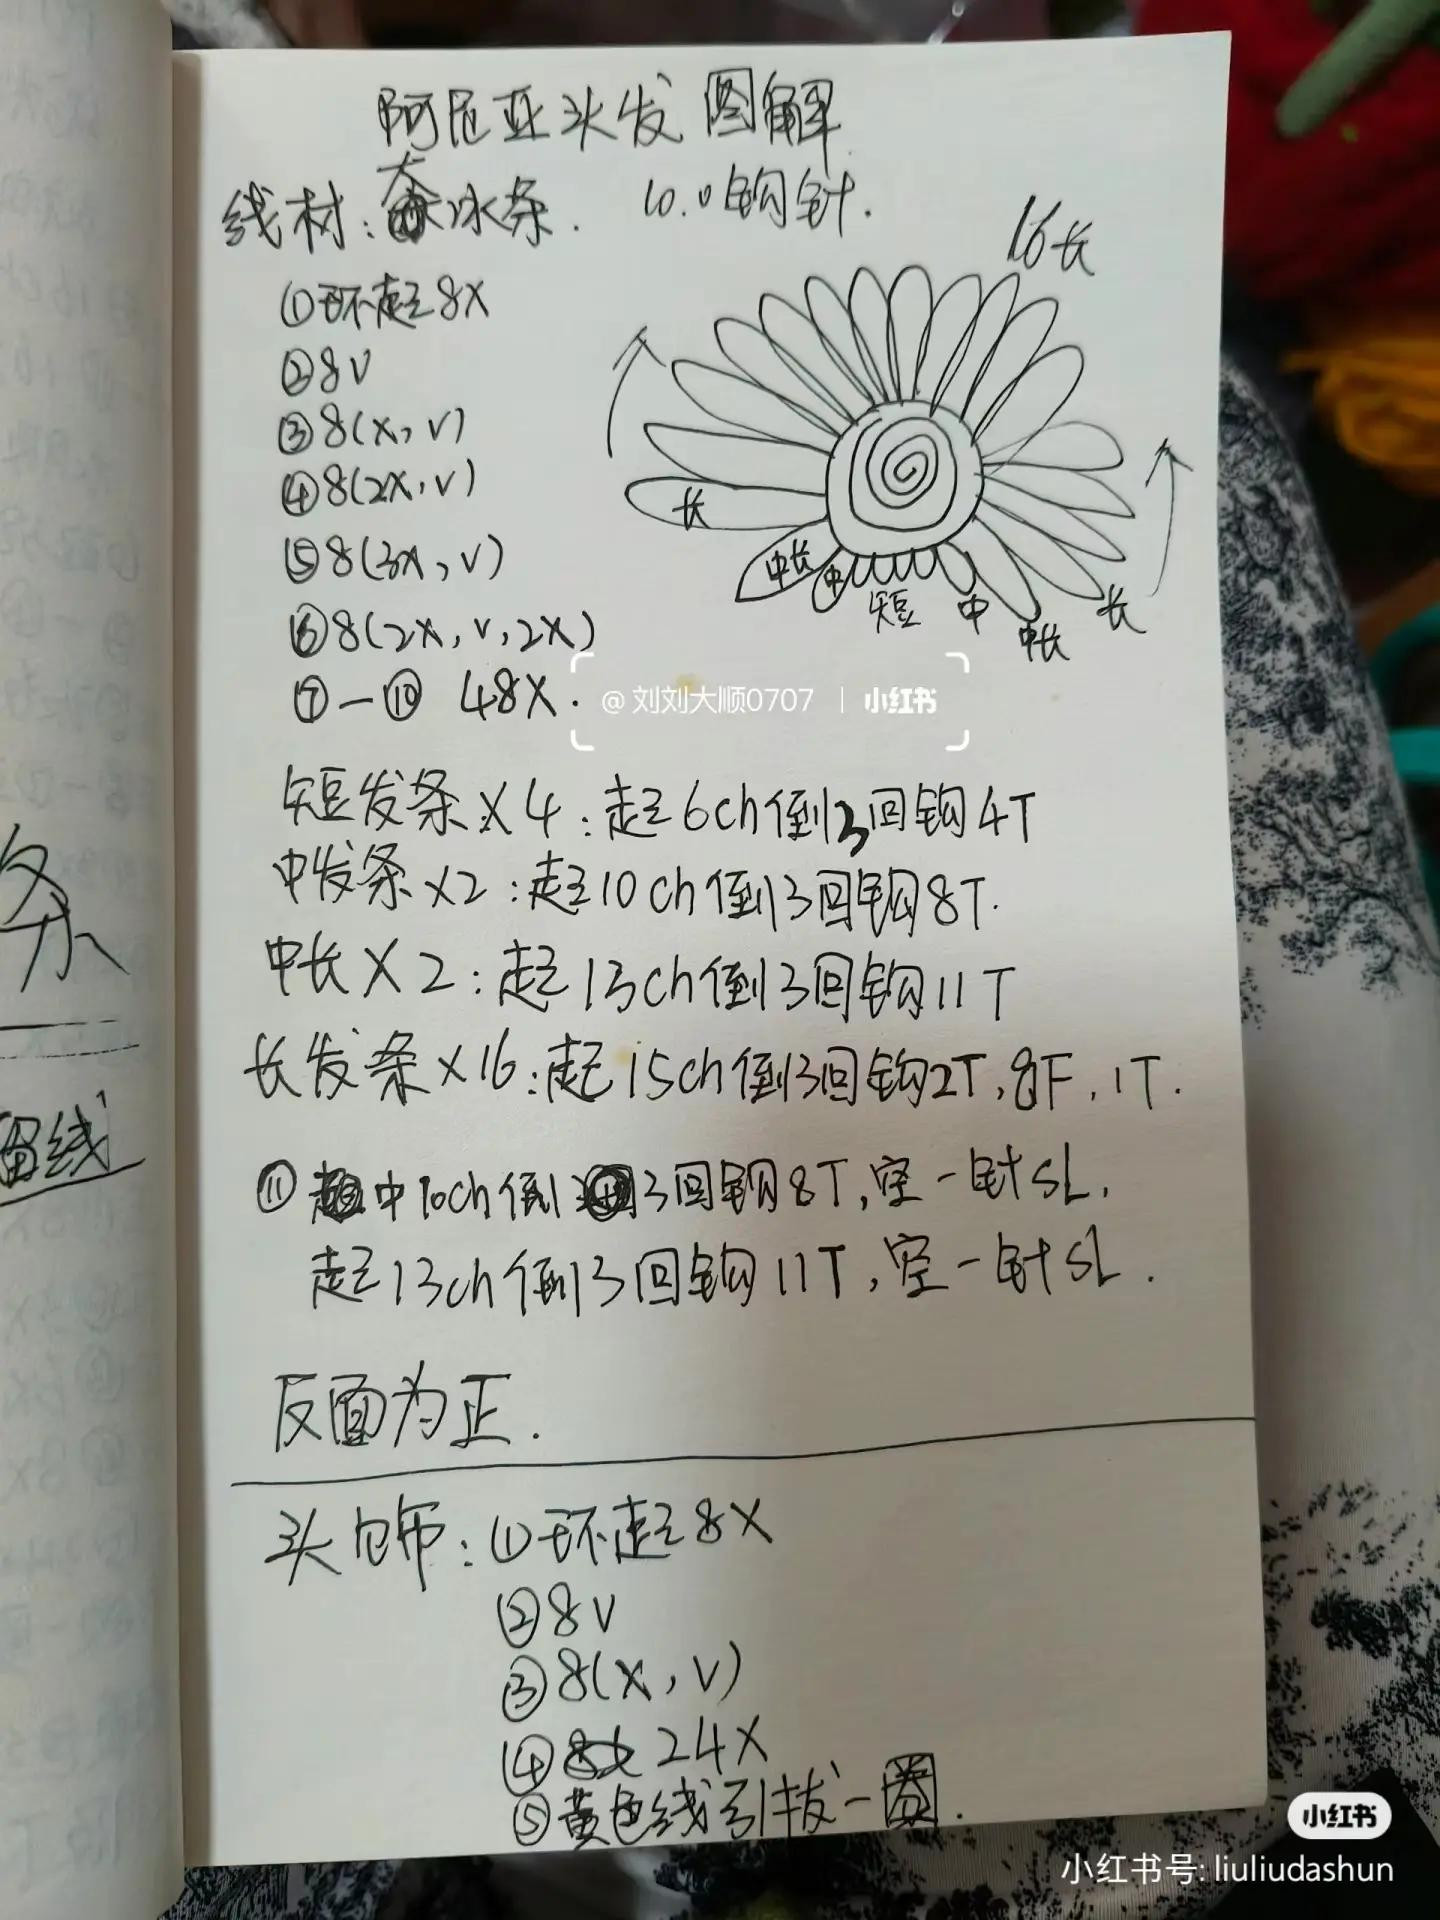 阿尼亚头发图解
线材:大冰条. 10.0钩针.
①环起8X
②8V
③8(X,V)
④8(2X,V)
⑤8(3X,V)
⑥8(2X,V,2X)
⑦—⑩ 48X.
16长
长
中长
中
短
中
中长
长
@刘刘大顺0707 | 小红书
短发条X4:起6ch倒3回钩4T
中发条X2:起10ch倒3回钩8T.
中长X2:起13ch倒3回钩11T
长发条X16:起15ch倒3回钩2T,8F,1T.
⑪中10ch倒3回钩8T,空一针SL,
起13ch倒3回钩11T,空一针SL.
反面为正.
头饰:①环起8X
②8V
③8(X,V)
④24X
⑤黄色线引拔一圈.
条
留线
小红书
小红书号: liuliudashun